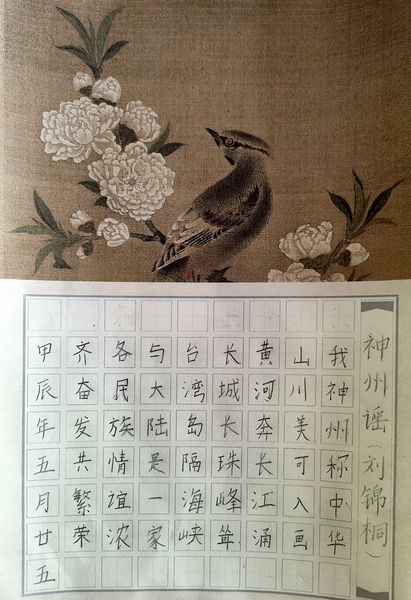 神州谣 刘锦桐）
我神州称中华
山川美可入画
黄河奔长江涌
长城长珠峰耸
台湾岛隔海峡
与大陆是一家
各民族情谊浓
齐奋发共繁荣
甲辰年五月廿五